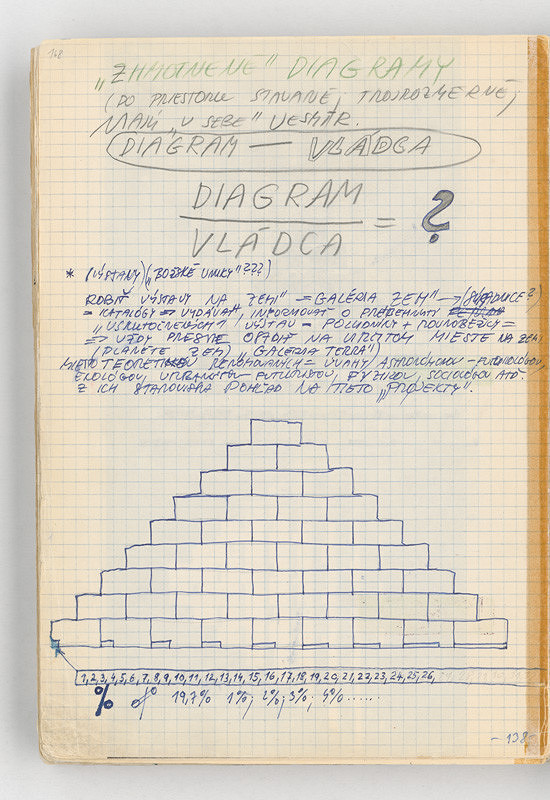 168
„ZHMOTNENÉ" DIAGRAMY
(DO PRIESTORU STAVANÉ, TROJROZMERNÉ,
MAJÚ „V SEBE" VESMÍR.
DIAGRAM — VLÁDCA
DIAGRAM
VLÁDCA
= ?
* (VÝSTAVY) („BOŽSKÉ ÚNIKY"???)
ROBIŤ VÝSTAVY NA „ZEMI" = GALÉRIA ZEM" →
= KATALÓGY => VYDÁVAŤ, INFORMOVAŤ O
„USKUTOČNENÝCH" VÝSTAV = POLUDNÍKY + ROVNOBEŽKY =
=> VŽDY PRESNE OPÍSAŤ NA URČITOM MIESTE NA ZEMI
(PLANÉTE ZEM) „GALERIA TERRA")
MIESTO TEORETIKOV RENOMOVANÝCH = ÚVAHY ASTROFYZIKOV – FUTUROLÓGOV,
EKOLÓGOV, URBANISTOV – FUTURISTOV, FYZIKOV, SOCIOLÓGOV ATĎ.
Z ICH STANOVISKA POHĽAD NA TIETO „PROJEKTY".
1,2,3,4,5,6,7,8,9,10,11,12,13,14,15,16,17,18,19,20,21,22,23,24,25,26,
% % 19,7% 1%; 2%; 3%; 4% .....
- 138 -